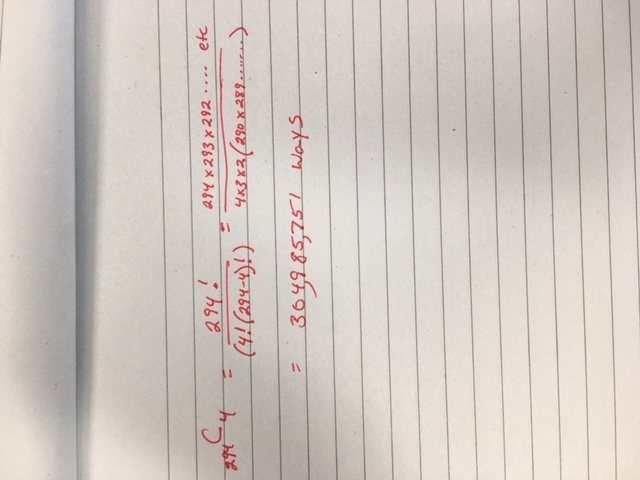 ₂₉₄C₄ = 294! / (4!(294-4)!) = 294x293x292.... etc / 4x3x2(290x289.......)
= 304,985,751 ways